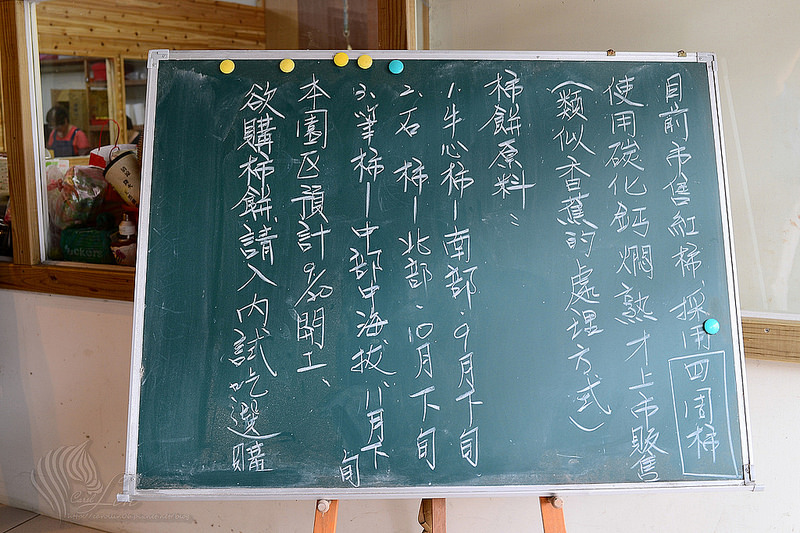 目前市售紅柿,採用四周柿
使用碳化鈣燜熟才上市販售
(類似香蕉的處理方式)
柿餅原料:
1.牛心柿-南部、9月下旬
2.石柿-北部、10月下旬
3.筆柿-中部中海拔、11月下旬
本園区預計9/20開工、
欲購柿餅請入內試吃選購